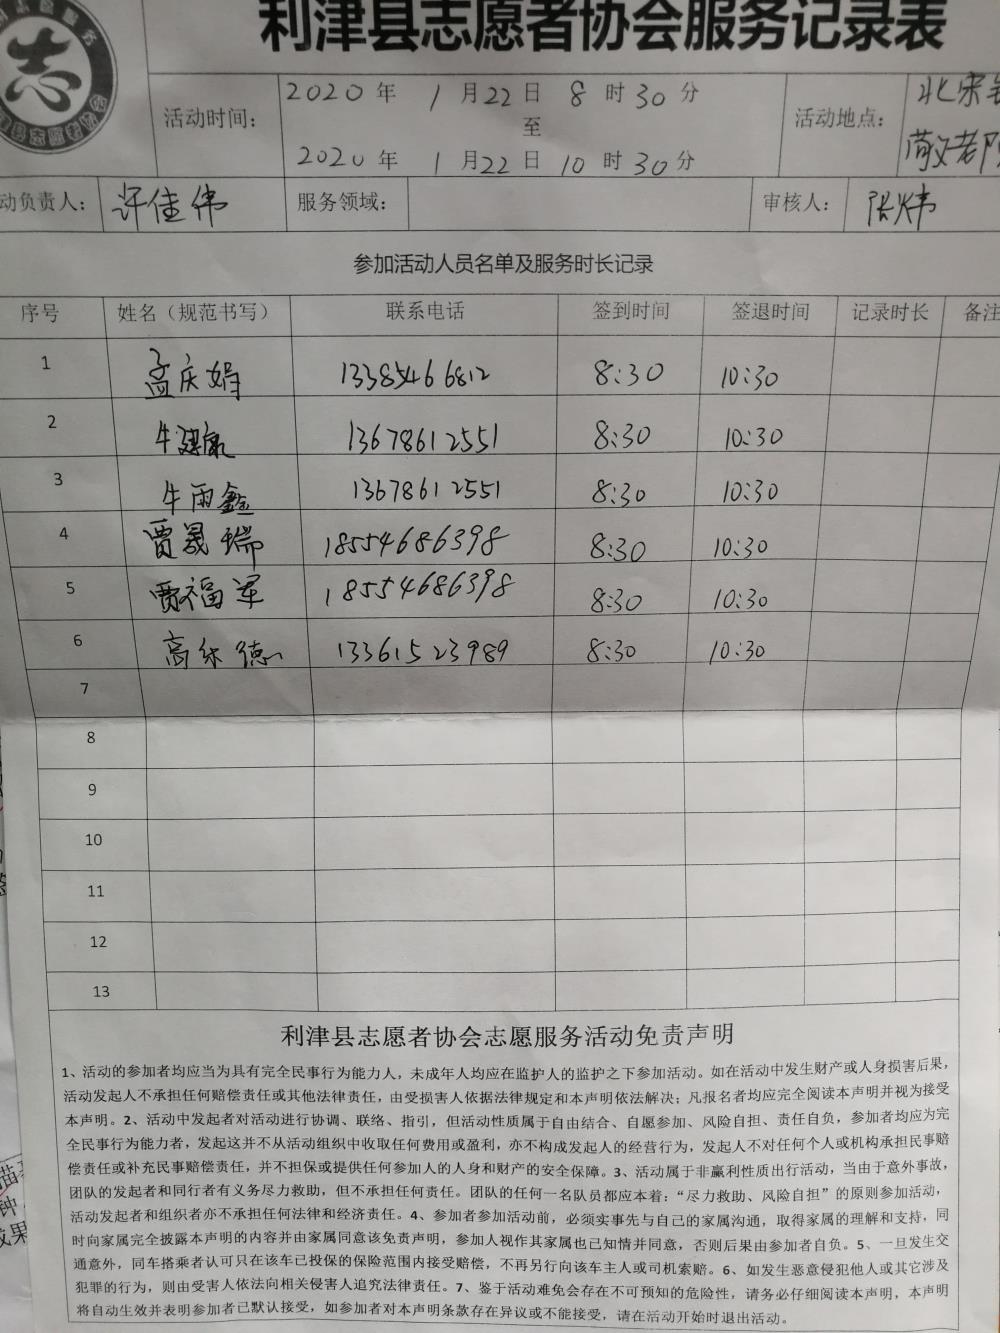 利津县志愿者协会服务记录表
志
津县志愿者协会
活动时间：
2020年 1月22日 8时30分
至
2020年 1月22日 10时30分
活动地点：
北宋
敬老
动负责人： 许佳伟 服务领域： 审核人： 张炜
参加活动人员名单及服务时长记录
序号 姓名（规范书写） 联系电话 签到时间 签退时间 记录时长 备注
1 孟庆娟 13385466812 8:30 10:30
2 牛建康 13678612551 8:30 10:30
3 牛雨鑫 13678612551 8:30 10:30
4 贾晟瑞 18554686398 8:30 10:30
5 贾福军 18554686398 8:30 10:30
6 高乐德 13361523989 8:30 10:30
7
8
9
10
11
12
13
利津县志愿者协会志愿服务活动免责声明
1、活动的参加者均应当为具有完全民事行为能力人，未成年人均应在监护人的监护之下参加活动。如在活动中发生财产或人身损害后果，
活动发起人不承担任何赔偿责任或其他法律责任，由受损害人依据法律规定和本声明依法解决；凡报名者均应完全阅读本声明并视为接受
本声明。2、活动中发起者对活动进行协调、联络、指引，但活动性质属于自由结合、自愿参加、风险自担、责任自负，参加者均应为完
全民事行为能力者，发起这并不从活动组织中收取任何费用或盈利，亦不构成发起人的经营行为，发起人不对任何个人或机构承担民事赔
偿责任或补充民事赔偿责任，并不担保或提供任何参加人的人身和财产的安全保障。3、活动属于非赢利性质出行活动，当由于意外事故，
团队的发起者和同行者有义务尽力救助，但不承担任何责任。团队的任何一名队员都应本着：“尽力救助、风险自担”的原则参加活动，
活动发起者和组织者亦不承担任何法律和经济责任。4、参加者参加活动前，必须实事先与自己的家属沟通，取得家属的理解和支持，同
时向家属完全披露本声明的内容并由家属同意该免责声明，参加人视作其家属也已知情并同意，否则后果由参加者自负。5、一旦发生交
通意外，同车搭乘者认可只在该车已投保的保险范围内接受赔偿，不再另行向该车主人或司机索赔。6、如发生恶意侵犯他人或其它涉及
犯罪的行为，则由受害人依法向相关侵害人追究法律责任。7、鉴于活动难免会存在不可预知的危险性，请务必仔细阅读本声明，本声明
将自动生效并表明参加者已默认接受，如参加者对本声明条款存在异议或不能接受，请在活动开始时退出活动。